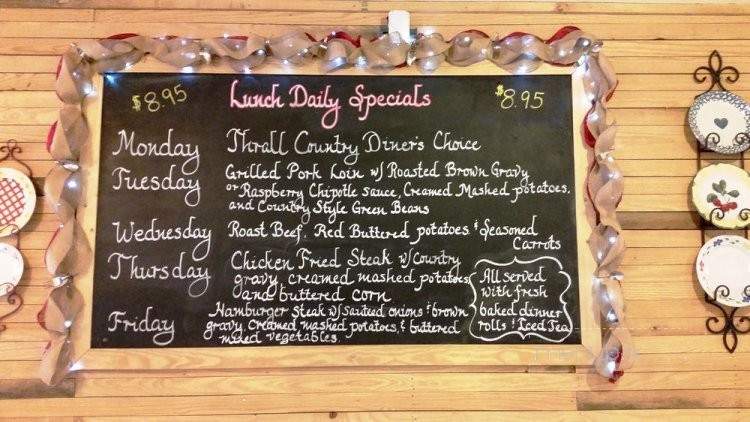 $8.95 Lunch Daily Specials $8.95
Monday Thrall Country Diner's Choice
Tuesday Grilled Pork Loin w/ Roasted Brown Gravy
or Raspberry Chipotle Sauce, Creamed Mashed potatoes,
and Country Style Green Beans
Wednesday Roast Beef, Red Buttered potatoes & Seasoned
Carrots
Thursday Chicken Fried Steak w/ Country
gravy, creamed mashed potatoes
and buttered corn
Friday Hamburger Steak w/ Sauteed onions & brown
gravy, creamed mashed potatoes, & buttered
mixed vegetables.
All served
with fresh
baked dinner
rolls & Iced Tea